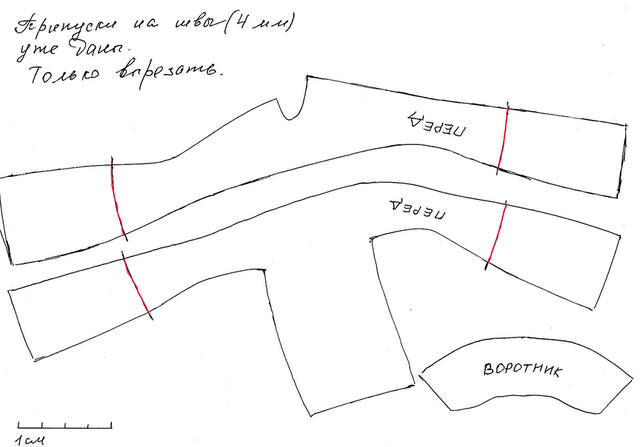 Припуски на швы (4 мм)
уже даны.
Только вырезать.
ПЕРЕД
ПЕРЕД
ВОРОТНИК
1 см